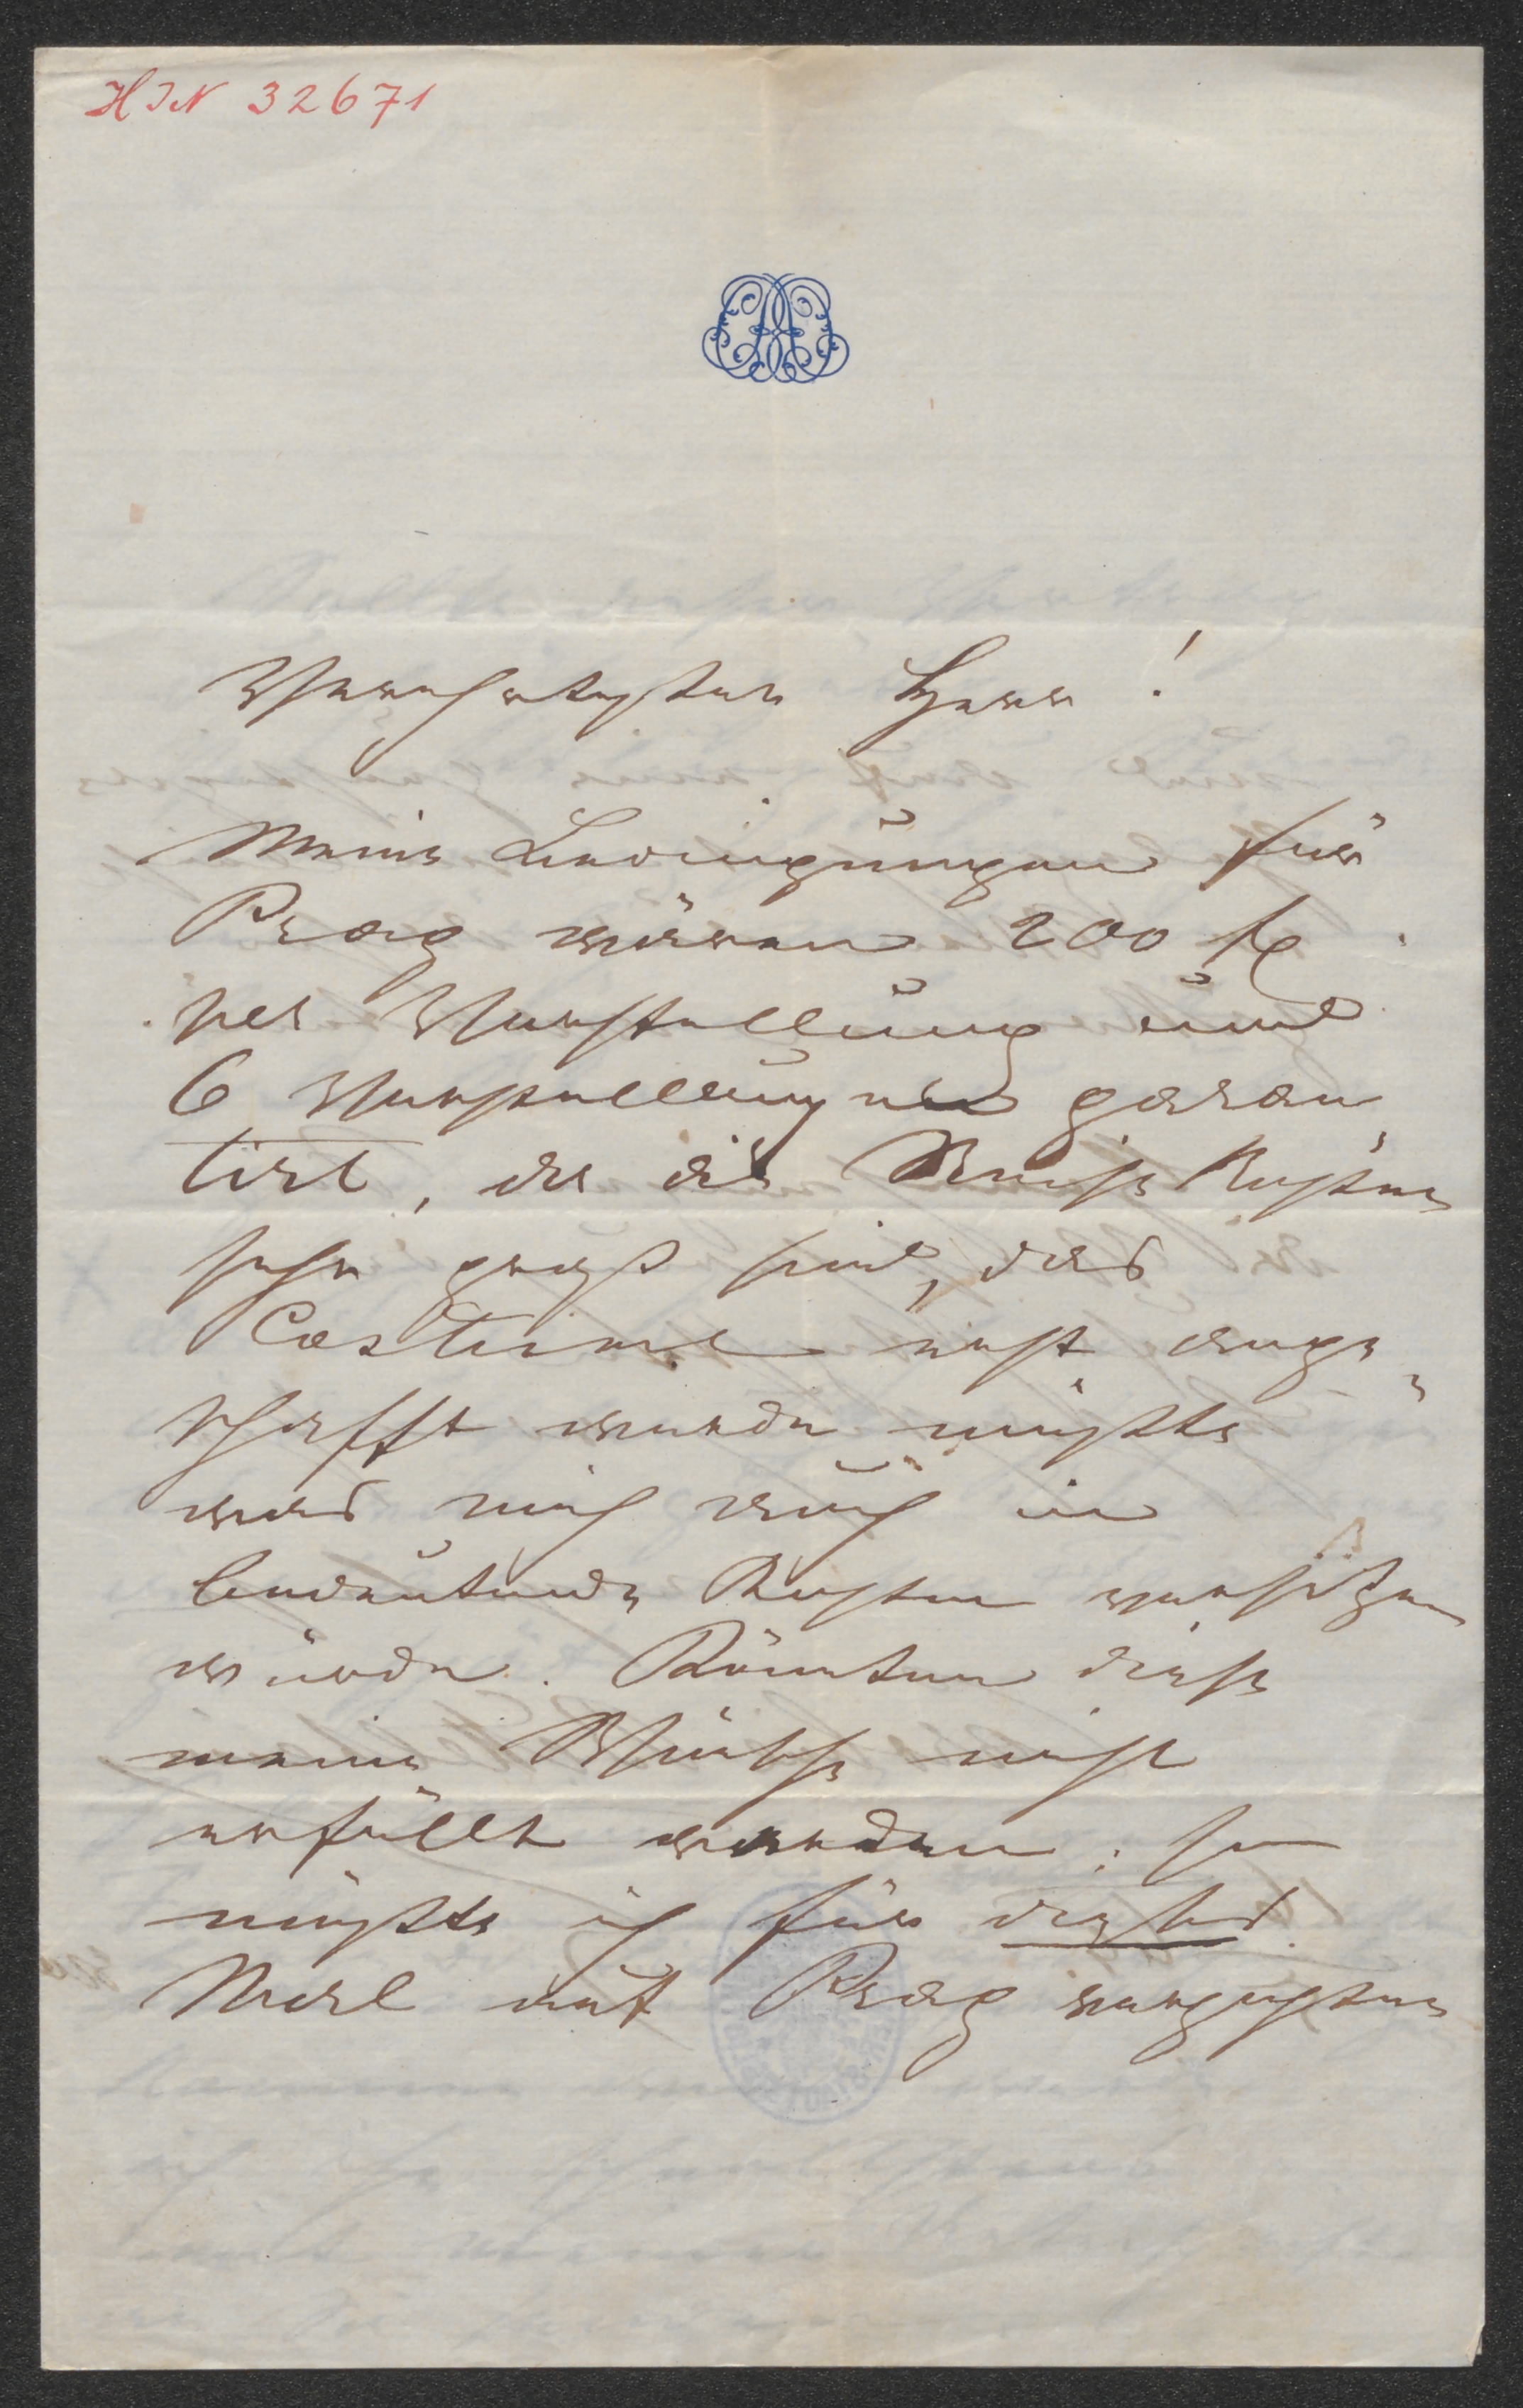 HIN 32671
Verehrtester Herr!
Meine Bedingungen für
Prag wären 200 fl
per Vorstellung und
6 Vorstellungen garan
tirt, da die Reise Kosten
sehr groß sind, das
Costüme erst ange
schafft werden müßte
was mich auch in
bedeutende Kosten versetzen
würde. Könnten diese
meine Wünsche nicht
erfüllt werden, so
müßte ich für dießes
Mal auf Prag verzichten